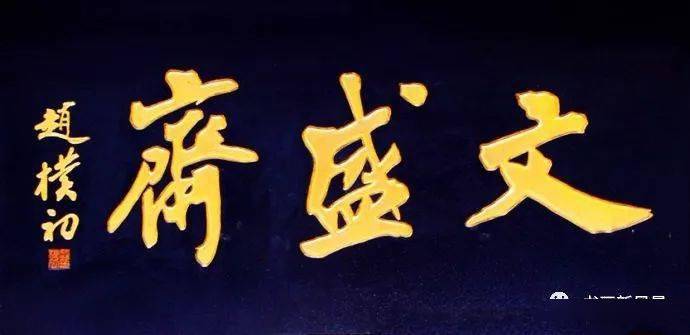 文盛齋
趙樸初